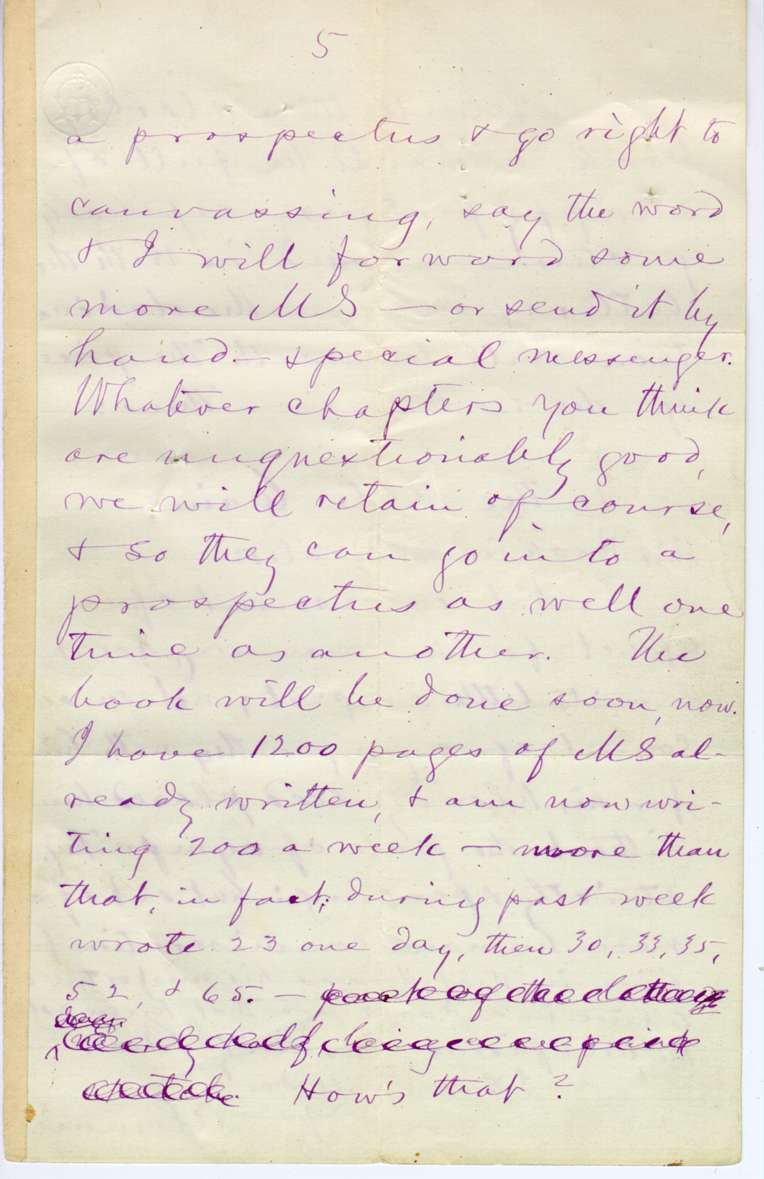 5
a prospectus & go right to
canvassing, say the word
& I will forward some
more MS — or send it by
hand — special messenger.
Whatever chapters you think
are unquestionably good,
we will retain of course,
& so they can go into a
prospectus as well one
time as another. The
book will be done soon, now.
I have 1200 pages of MS al-
ready written, & am now wri-
ting 200 a week — more than
that, in fact; during past week
wrote 23 one day, then 30, 33, 35,
52, & 65. —
How's that?